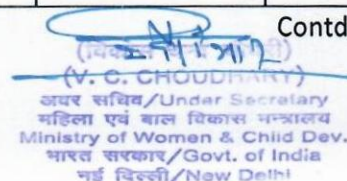 Contd
(V. C. CHOUDHARY)
अवर सचिव/Under Secretary
महिला एवं बाल विकास मन्त्रालय
Ministry of Women & Child Dev.
भारत सरकार/Govt. of India
नई दिल्ली/New Delhi